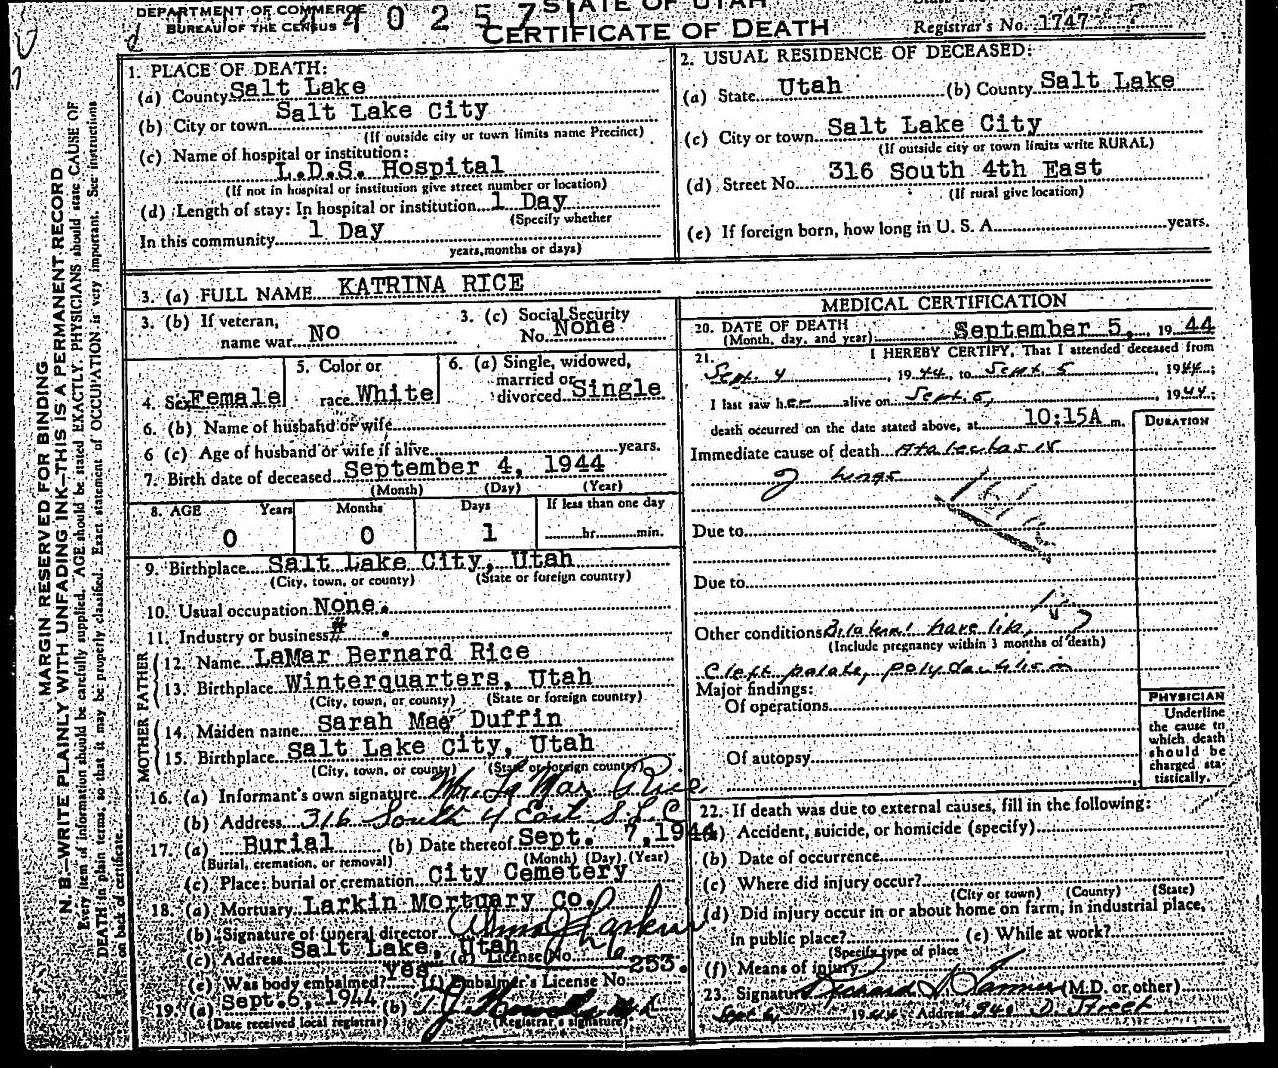 DEPARTMENT OF COMMERCE
BUREAU OF THE CENSUS
4 4 0 2 5 7 1
STATE OF UTAH
CERTIFICATE OF DEATH
Registrar's No. 1747
MARGIN RESERVED FOR BINDING
N. B.—WRITE PLAINLY WITH UNFADING INK—THIS IS A PERMANENT RECORD
Every item of information should be carefully supplied. AGE should be stated EXACTLY. PHYSICIANS should state CAUSE OF
DEATH in plain terms, so that it may be properly classified. Exact statement of OCCUPATION is very important. See instructions
on back of certificate.
1. PLACE OF DEATH:
(a) County Salt Lake
(b) City or town Salt Lake City
(If outside city or town limits name Precinct)
(c) Name of hospital or institution:
L.D.S. Hospital
(If not in hospital or institution give street number or location)
(d) Length of stay: In hospital or institution 1 Day
(Specify whether
In this community 1 Day
years, months or days)
2. USUAL RESIDENCE OF DECEASED:
(a) State Utah (b) County Salt Lake
(c) City or town Salt Lake City
(If outside city or town limits write RURAL)
(d) Street No. 316 South 4th East
(If rural give location)
(e) If foreign born, how long in U. S. A. years.
3. (a) FULL NAME KATRINA RICE
3. (b) If veteran, name war No
3. (c) Social Security No. None
4. Sex Female
5. Color or race White
6. (a) Single, widowed, married or divorced Single
6. (b) Name of husband or wife
6 (c) Age of husband or wife if alive years.
7. Birth date of deceased September 4, 1944
(Month) (Day) (Year)
8. AGE Years Months Days If less than one day
0 0 1 hr. min.
9. Birthplace Salt Lake City, Utah
(City, town, or county) (State or foreign country)
10. Usual occupation None.
11. Industry or business # .
FATHER
12. Name LaMar Bernard Rice
13. Birthplace Winterquarters, Utah
(City, town, or county) (State or foreign country)
MOTHER
14. Maiden name Sarah Mae Duffin
15. Birthplace Salt Lake City, Utah
(City, town, or county) (State or foreign country)
16. (a) Informant's own signature Mr. La Mar Rice
(b) Address 316 South 4 East S.L.C.
17. (a) Burial (b) Date thereof Sept. 7, 1944
(Burial, cremation, or removal) (Month) (Day) (Year)
(c) Place: burial or cremation City Cemetery
18. (a) Mortuary Larkin Mortuary Co.
(b) Signature of funeral director Alma J Larkin
(c) Address Salt Lake, Utah (d) License No. 6
(e) Was body embalmed? Yes (f) Embalmer's License No. 253.
19. (a) Sept. 6, 1944 (b)
(Date received local registrar) (Registrar's signature)
MEDICAL CERTIFICATION
20. DATE OF DEATH
(Month, day, and year) September 5, 1944
21. I HEREBY CERTIFY, That I attended deceased from
Sept. 4, 1944, to Sept. 5, 1944;
I last saw her alive on Sept. 5, 1944;
death occurred on the date stated above, at 10:15A m.
DURATION
Immediate cause of death Atalectasis
of lungs
Due to
Due to
Other conditions Bilateral hare lip,
(Include pregnancy within 3 months of death)
Cleft palate, polydactilism
Major findings:
Of operations
Of autopsy
PHYSICIAN
Underline
the cause to
which death
should be
charged sta-
tistically.
22. If death was due to external causes, fill in the following:
(a) Accident, suicide, or homicide (specify)
(b) Date of occurrence
(c) Where did injury occur?
(City or town) (County) (State)
(d) Did injury occur in or about home on farm, in industrial place,
in public place? (e) While at work?
(Specify type of place
(f) Means of injury
23. Signature (M.D. or other)
Sept 6, 1944 Address D. Street